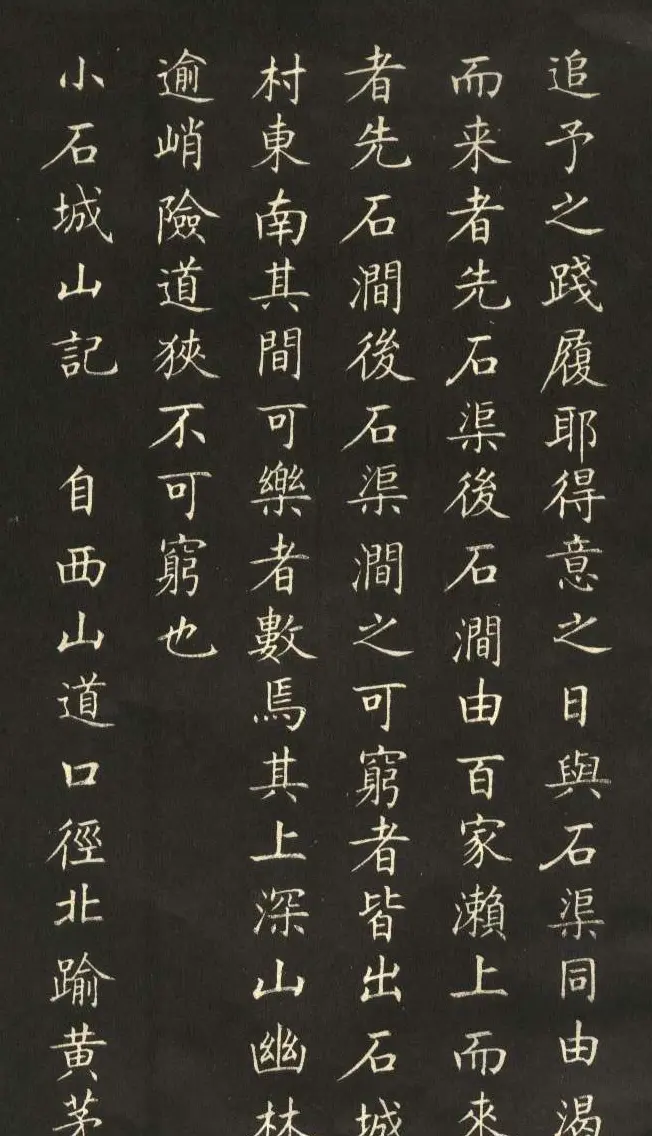 追予之踐履耶得意之日與石渠同由渴
而来者先石渠後石澗由百家瀨上而來
者先石澗後石渠澗之可窮者皆出石城
村東南其間可樂者數焉其上深山幽林
逾峭險道狹不可窮也
小石城山記 自西山道口徑北踰黄茅